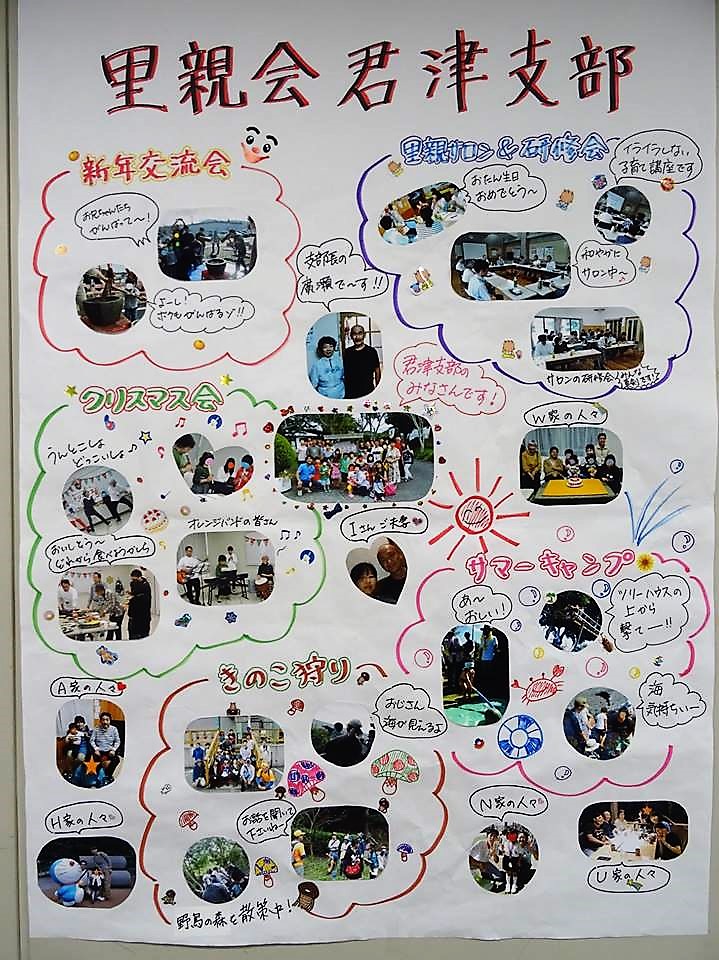 里親会 君津支部
新年交流会
お兄ちゃんたち
がんばって〜!
よーし!
ボクもがんばるゾ!!
里親サロン&研修会
おたん生日
おめでとう〜
イライラしない
子育て講座です
和やかに
サロン中〜♪
サロンの研修会
支部長の
廣瀬で〜す!!
君津支部の
みなさんです!
クリスマス会
うんとこしょ
どっこいしょ♪
オレンジバンドの皆さん
おいしそう〜
どれから食べようかしら
Iさんご夫妻
W家の人々
サマーキャンプ
あ〜
おしい!
ツリーハウスの
上から
撃てー!!
海
気持ちいー
きのこ狩り
おじさん
海が見えるよ
お話を聞いて
下さいね〜
野鳥の森を散策中!
A家の人々
H家の人々
N家の人々
U家の人々